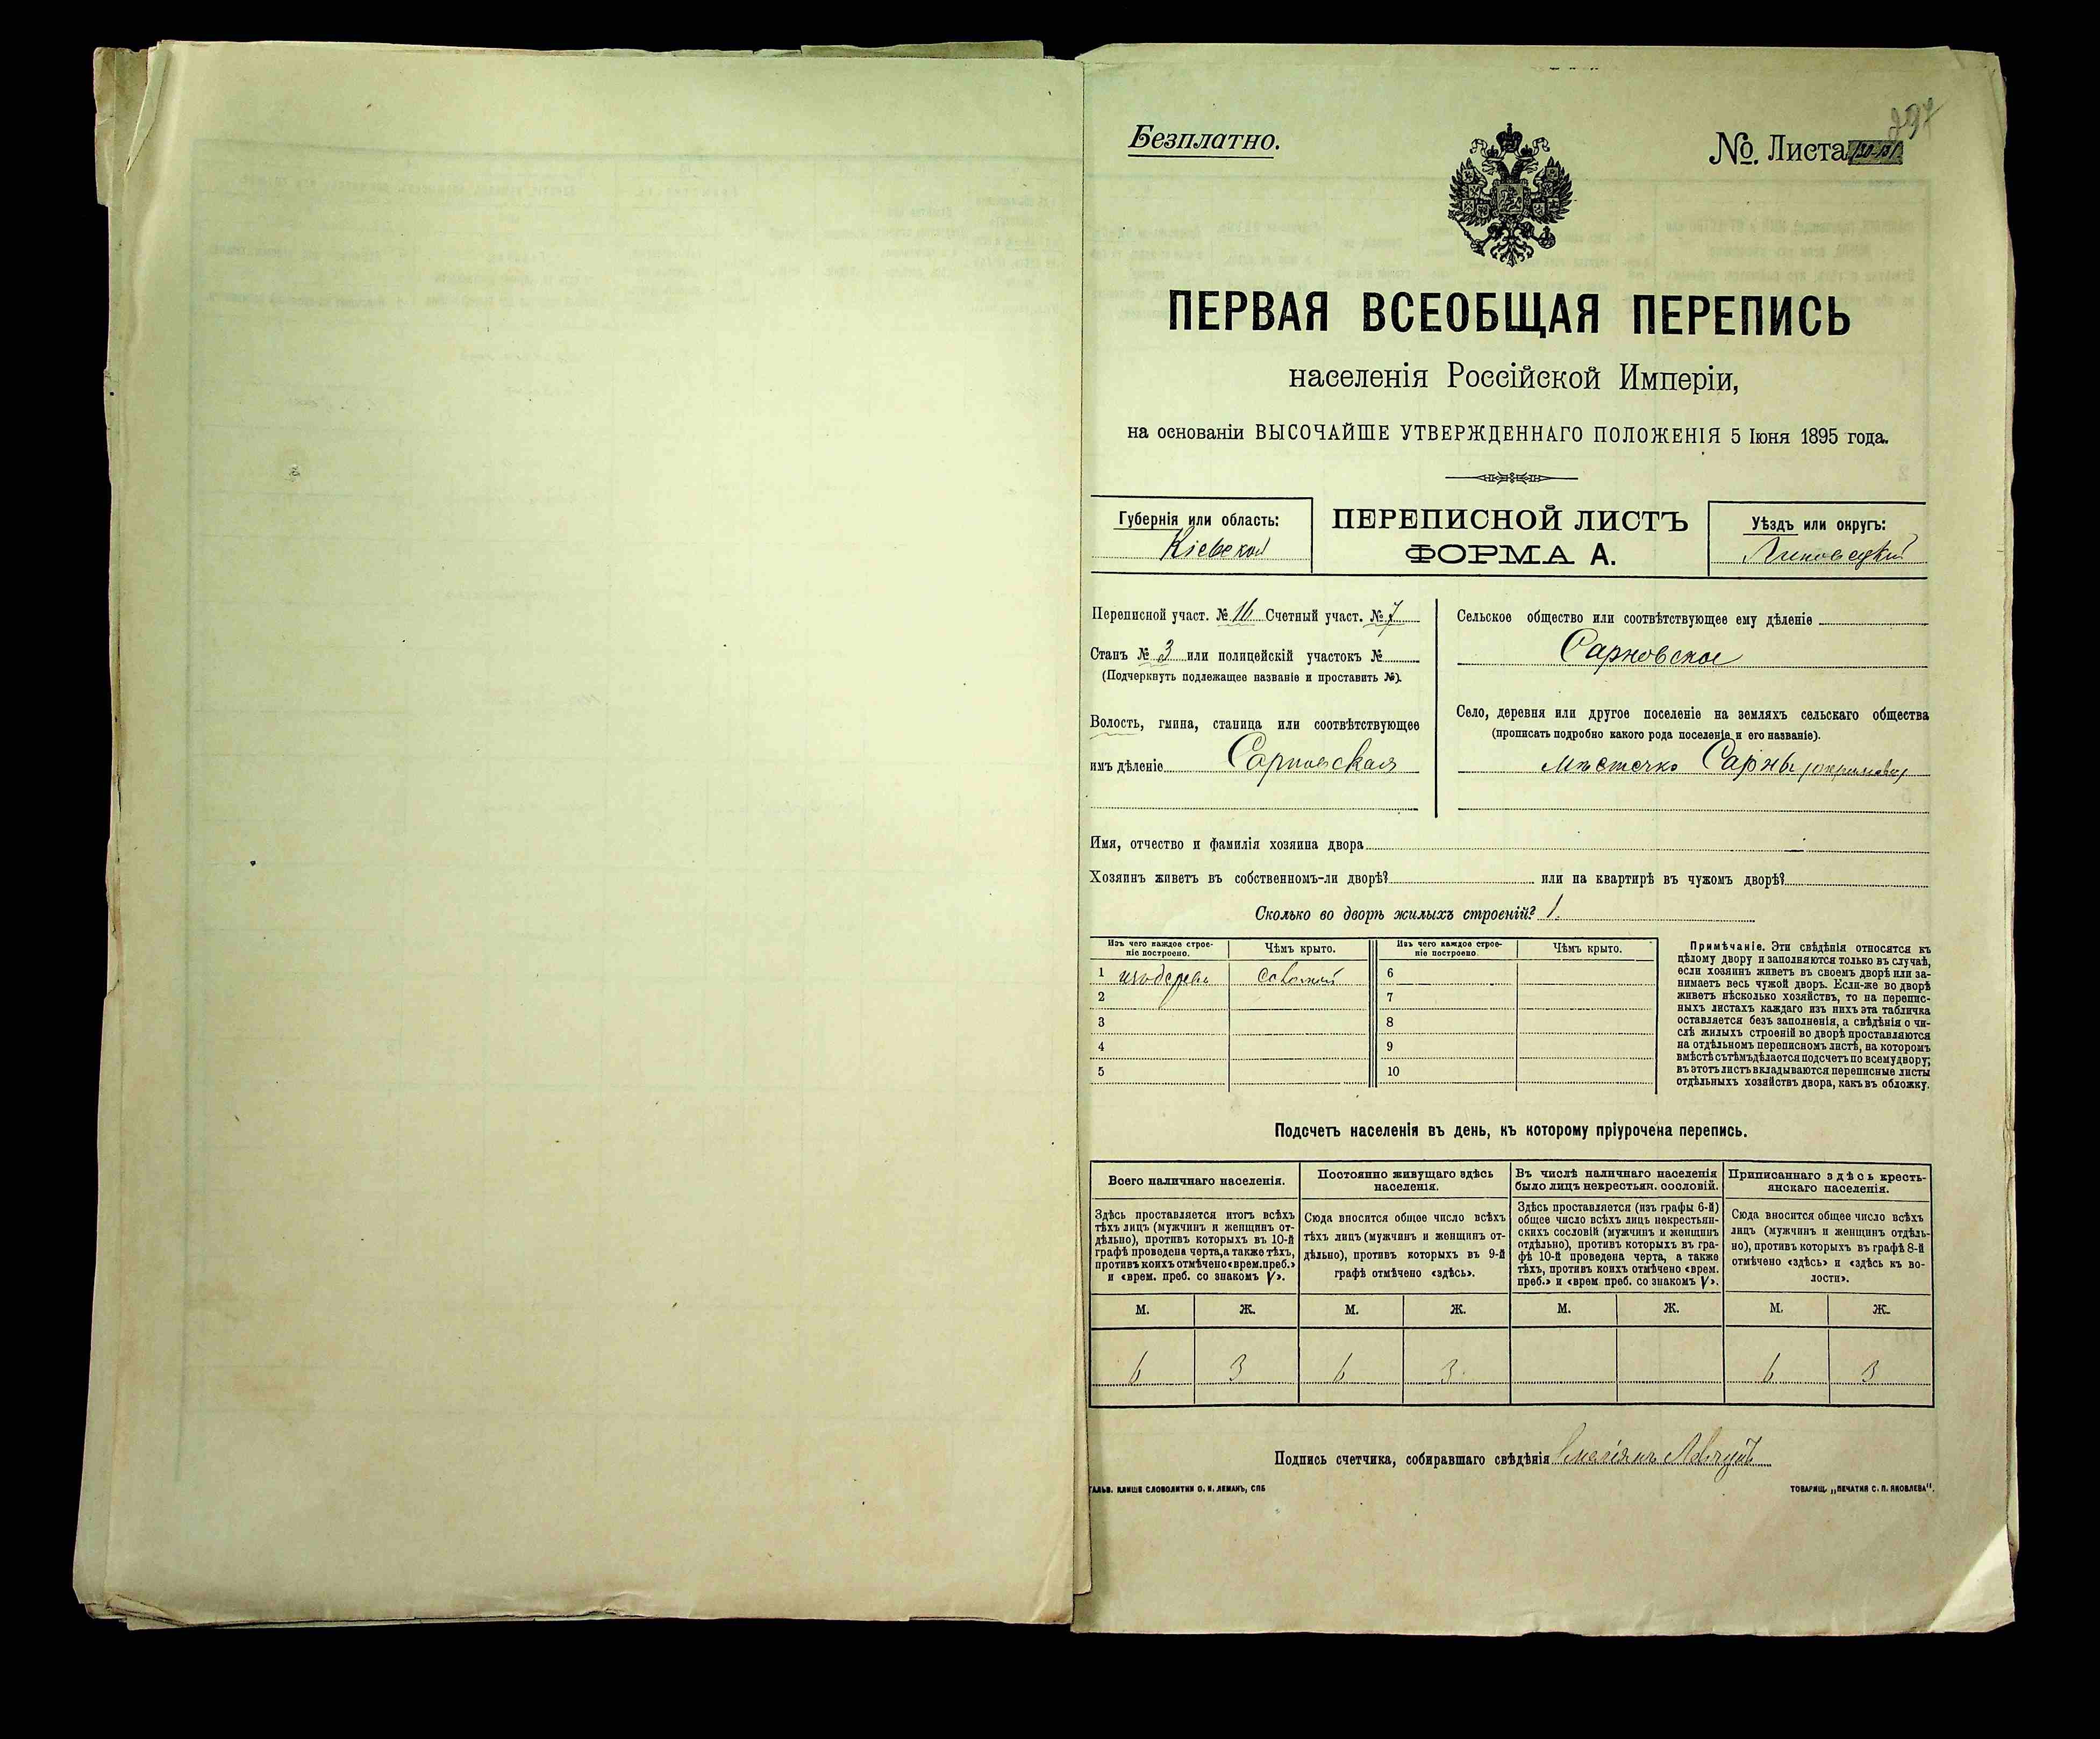 Безплатно.
№. Листа
ПЕРВАЯ ВСЕОБЩАЯ ПЕРЕПИСЬ
населенія Россійской Имперіи,
на основаніи ВЫСОЧАЙШЕ УТВЕРЖДЕННАГО ПОЛОЖЕНІЯ 5 Іюня 1895 года.
Губернія или область:
Кіевской
ПЕРЕПИСНОЙ ЛИСТЪ
ФОРМА А.
Уѣздъ или округъ:
Липовецкій
Переписной участ. № 16 Счетный участ. № 7
Станъ № 3 или полицейскій участокъ №
(Подчеркнуть подлежащее названіе и проставить №).
Волость, гмина, станица или соотвѣтствующее
имъ дѣленіе Сарновская
Сельское общество или соотвѣтствующее ему дѣленіе
Сарновское
Село, деревня или другое поселеніе на земляхъ сельскаго общества
(прописать подробно какого рода поселеніе и его названіе).
мѣстечко Сарны
Имя, отчество и фамилія хозяина двора
Хозяинъ живетъ въ собственномъ-ли дворѣ? или на квартирѣ въ чужомъ дворѣ?
Сколько во дворѣ жилыхъ строеній? 1.
Изъ чего каждое строе-
ніе построено.
Чѣмъ крыто.
Изъ чего каждое строе-
ніе построено.
Чѣмъ крыто.
1 изъ дерева соломой 6
2 7
3 8
4 9
5 10
Примѣчаніе. Эти свѣдѣнія относятся къ
цѣлому двору и заполняются только въ случаѣ,
если хозяинъ живетъ въ своемъ дворѣ или за-
нимаетъ весь чужой дворъ. Если-же во дворѣ
живетъ нѣсколько хозяйствъ, то на перепис-
ныхъ листахъ каждаго изъ нихъ эта табличка
оставляется безъ заполненія, а свѣдѣнія о чи-
слѣ жилыхъ строеній во дворѣ проставляются
на отдѣльномъ переписномъ листѣ, на которомъ
вмѣстѣ съ тѣмъ дѣлается подсчетъ по всему двору;
въ этотъ листъ вкладываются переписные листы
отдѣльныхъ хозяйствъ двора, какъ въ обложку.
Подсчетъ населенія въ день, къ которому пріурочена перепись.
Всего наличнаго населенія.
Здѣсь проставляется итогъ всѣхъ
тѣхъ лицъ (мужчинъ и женщинъ от-
дѣльно), противъ которыхъ въ 10-й
графѣ проведена черта, а также тѣхъ,
противъ коихъ отмѣчено «врем. преб.»
и «врем. преб. со знакомъ V».
Постоянно живущаго здѣсь
населенія.
Сюда вносится общее число всѣхъ
тѣхъ лицъ (мужчинъ и женщинъ от-
дѣльно), противъ которыхъ въ 9-й
графѣ отмѣчено «здѣсь».
Въ числѣ наличнаго населенія
было лицъ некрестьян. сословій.
Здѣсь проставляется (изъ графы 6-й)
общее число всѣхъ лицъ некрестьян-
скихъ сословій (мужчинъ и женщинъ
отдѣльно), противъ которыхъ въ гра-
фѣ 10-й проведена черта, а также
тѣхъ, противъ коихъ отмѣчено «врем.
преб.» и «врем преб. со знакомъ V».
Приписаннаго здѣсь кресть-
янскаго населенія.
Сюда вносится общее число всѣхъ
лицъ (мужчинъ и женщинъ отдѣль-
но), противъ которыхъ въ графѣ 8-й
отмѣчено «здѣсь» и «здѣсь къ во-
лости».
М. Ж. М. Ж. М. Ж. М. Ж.
6 3 6 3 6 3
Подпись счетчика, собиравшаго свѣдѣнія
ГАЛЬВ. КЛИШЕ СЛОВОЛИТНИ О. И. ЛЕМАНЪ, СПБ
ТОВАРИЩ. „ПЕЧАТНЯ С. П. ЯКОВЛЕВА".